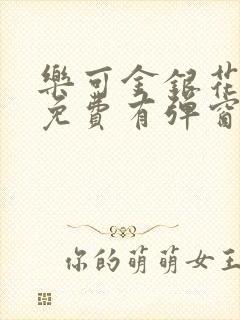 樂可金銀花
免費有彈窗
你的萌萌女王